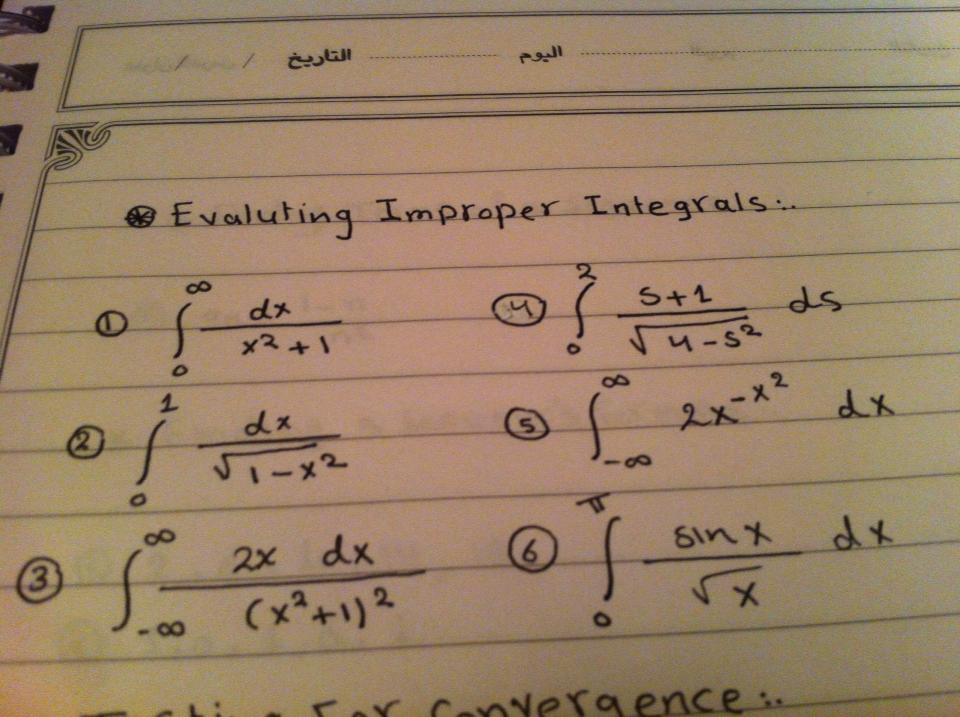 التاريخ / / اليوم
⊛ Evaluting Improper Integrals:.
① ∫₀^∞ dx / (x² + 1)
④ ∫₀² (s+1) / √(4-s²) ds
② ∫₀¹ dx / √(1-x²)
⑤ ∫_{-∞}^∞ 2x^{-x²} dx
③ ∫_{-∞}^∞ 2x dx / (x²+1)²
⑥ ∫₀^π sin x / √x dx
For Convergence:.